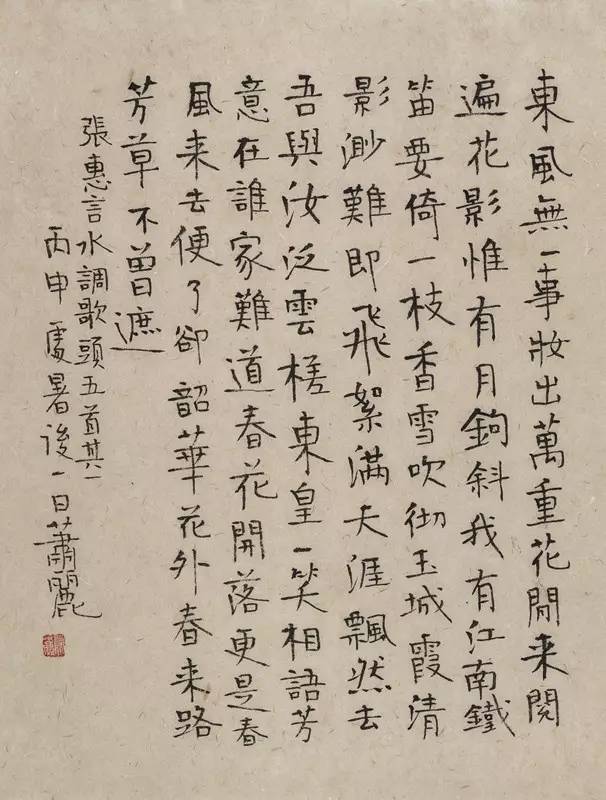 東風無一事妝出萬重花閒来閱
遍花影惟有月鉤斜我有江南鐵
笛要倚一枝香雪吹彻玉城霞清
影渺難即飛絮滿天涯飄然去
吾與汝泛雲槎東皇一笑相語芳
意在誰家難道春花開落更是春
風来去便了卻韶華花外春来路
芳草不曾遮
張惠言水調歌頭五首其一
丙申處暑後一日蕭麗